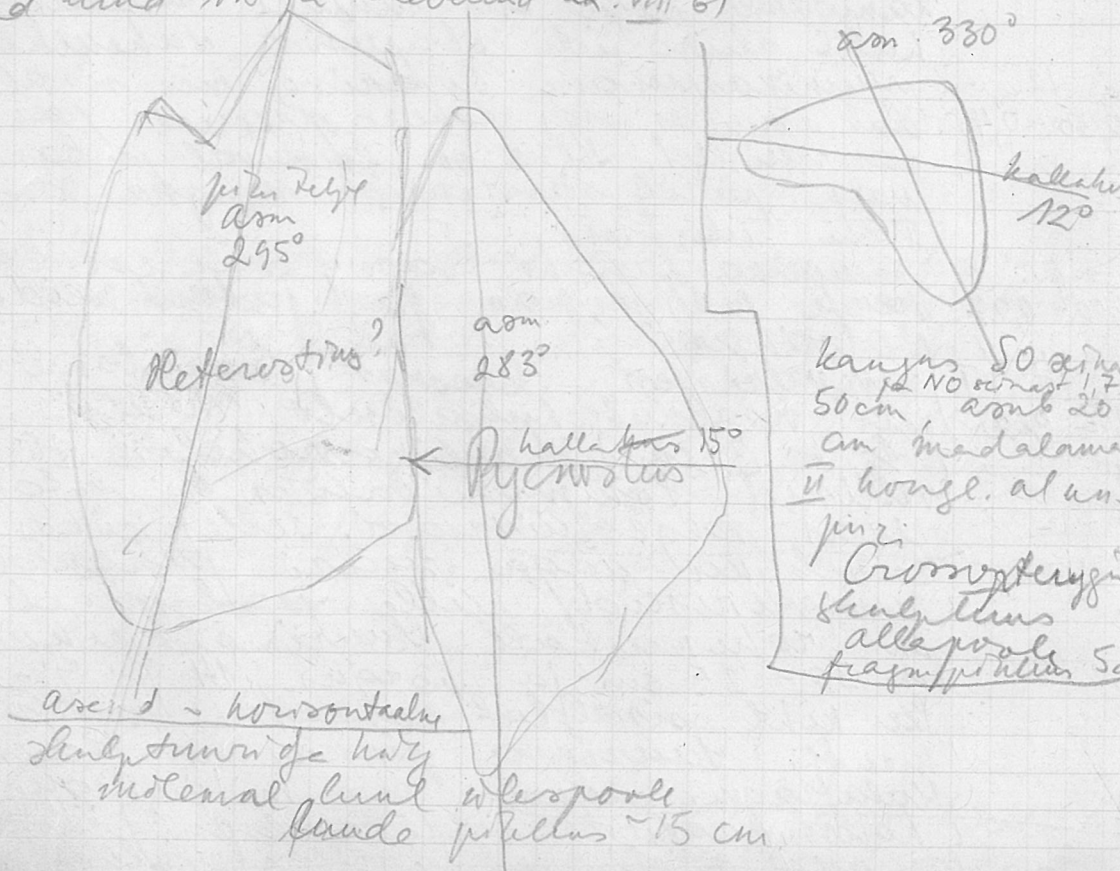 asm. 330°
kallakus
12°
pikitelje
asm
295°
Heterostius?
asm.
283°
kallakus 15°
Pycnosteus
kaugus SO seina
ja NO seinast 1,7
50cm asub 20
cm madalama
II kongl. alum.
piiri
Crossopteryg
skulptuur
allapoole
fragm pikkus 5
asend ~ horisontaalne
skulptuuriga külg
mõlemal luul ülespoole
Luude pikkus ~15 cm